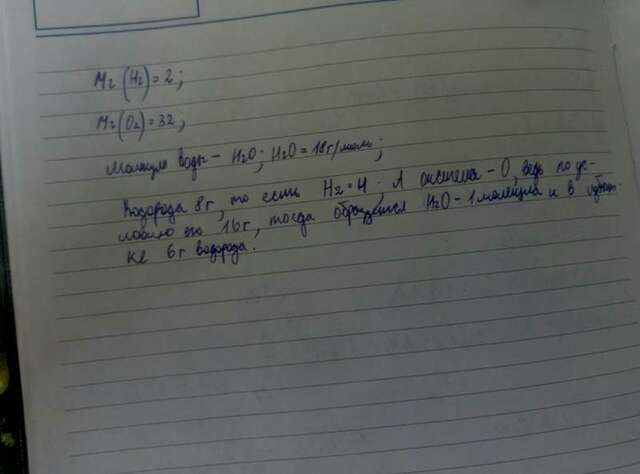 Mr(H2)=2;
Mr(O2)=32;
Молекула воды - H2O; H2O=18г/моль;
Водорода 8г, то есть H2=4; А кислорода - O, ведь по ус-
ловию его 16г, тогда образуется H2O - 1 молекула и в избыт-
ке 6г водорода.